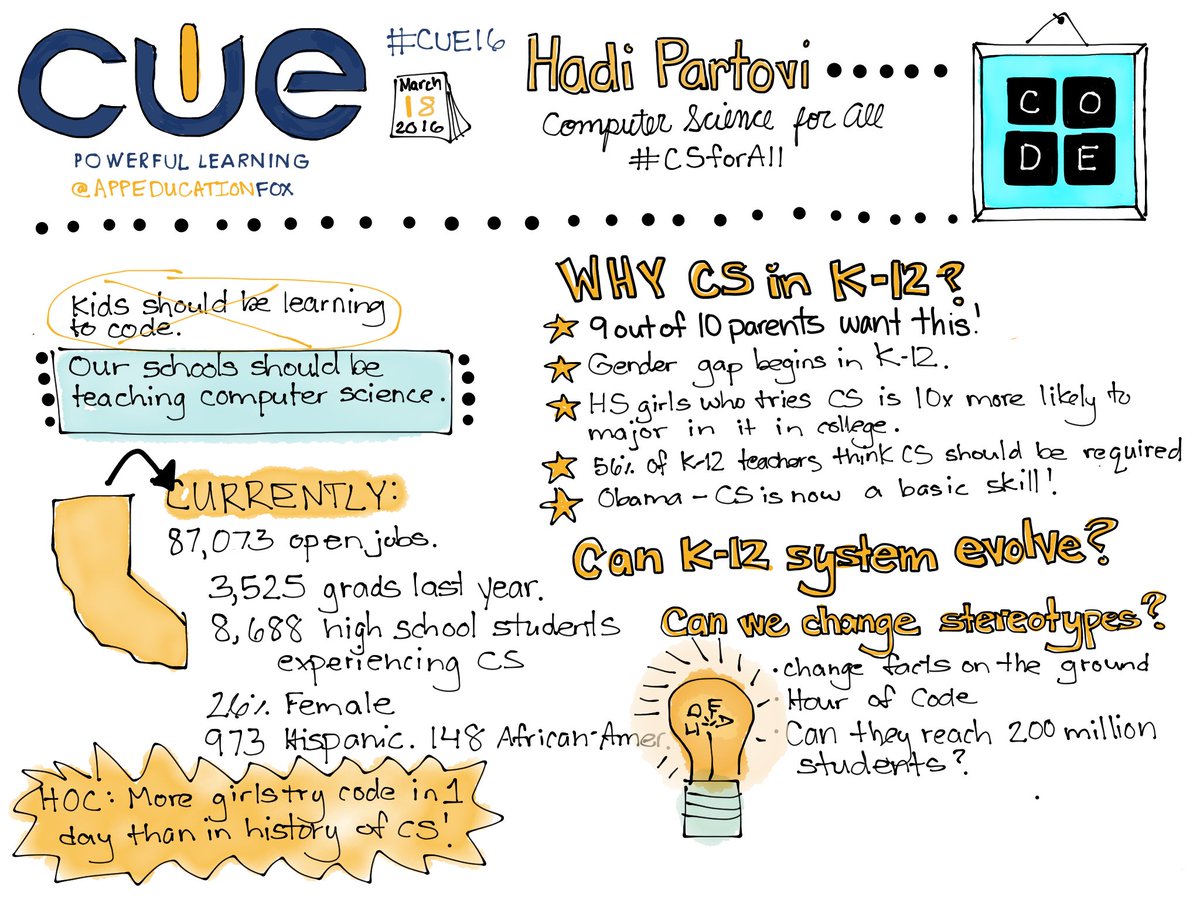 CUE
POWERFUL LEARNING
@APPEDUCATIONFOX
#CUE16
March
18
2016
Hadi Partovi
Computer Science for All
#CSforAll
C O
D E
Kids should be learning
to code.
Our schools should be
teaching computer science.
CURRENTLY:
87,073 open jobs.
3,525 grads last year.
8,688 high school students
experiencing CS
26% Female
973 Hispanic. 148 African-Amer.
HOC: More girls try code in 1
day than in history of CS!
WHY CS in K-12?
9 out of 10 parents want this!
Gender gap begins in K-12.
HS girls who tries CS is 10x more likely to
major in it in college.
56% of K-12 teachers think CS should be required
Obama - CS is now a basic skill!
Can K-12 system evolve?
Can we change stereotypes?
• change facts on the ground
• Hour of Code
• Can they reach 200 million
students?